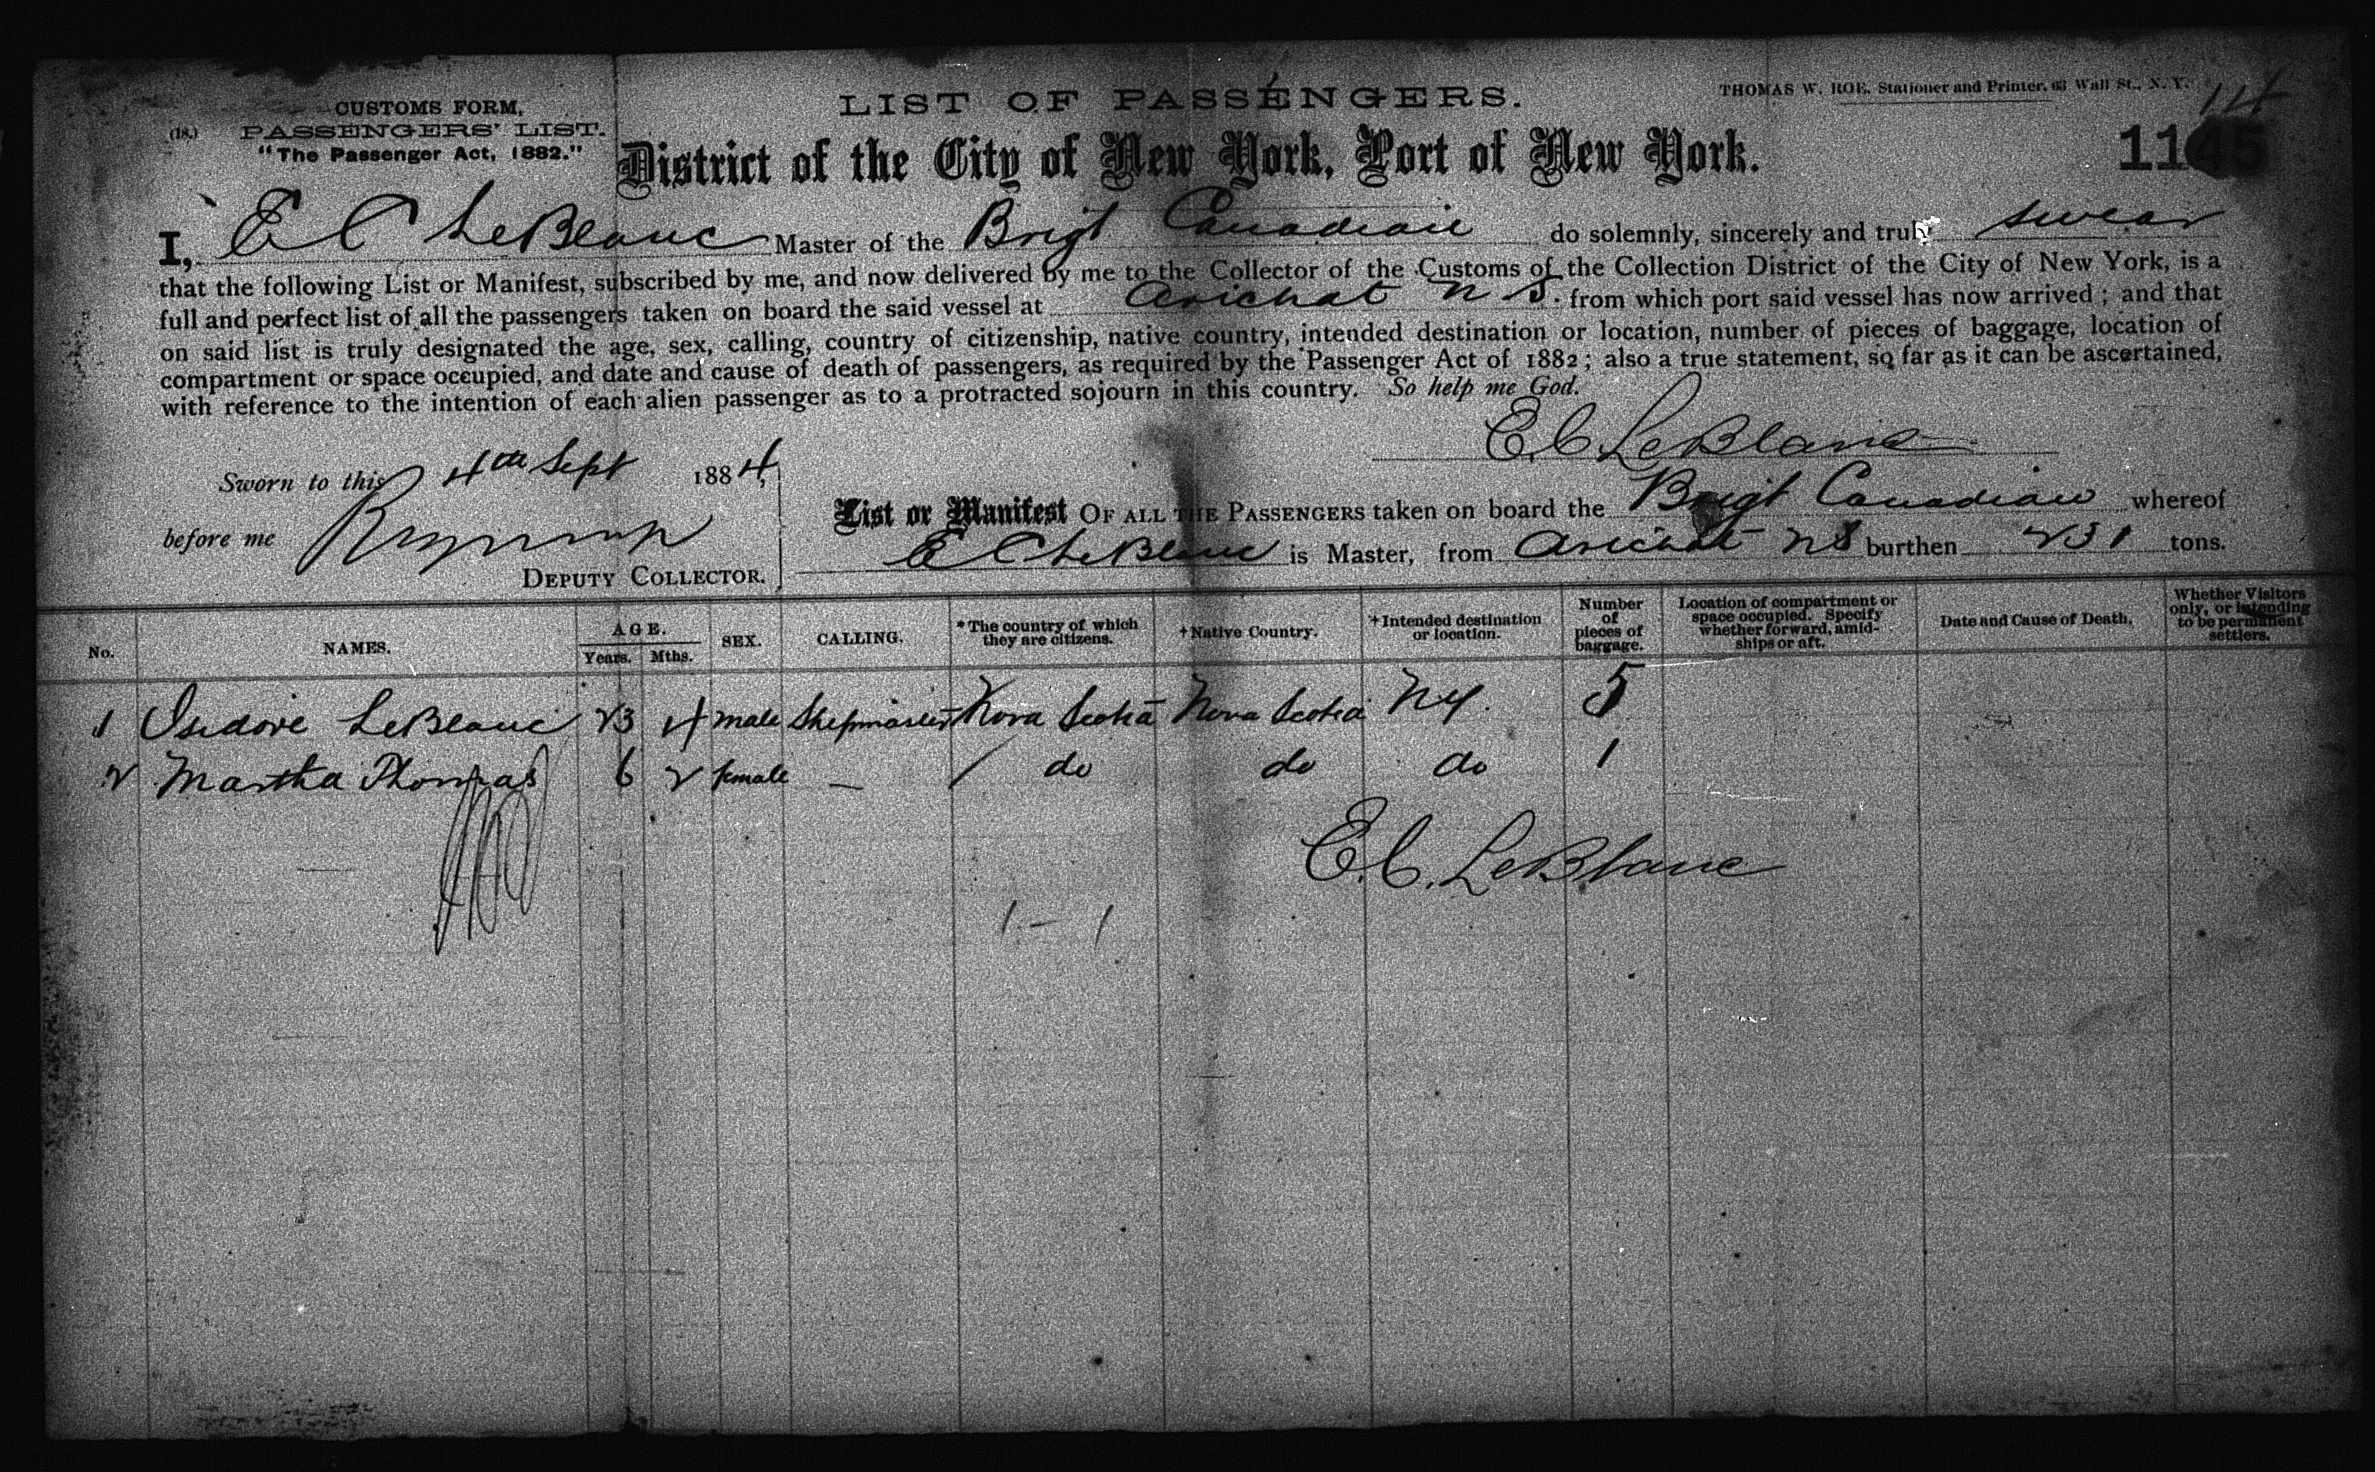 CUSTOMS FORM,
(18.) PASSENGERS' LIST.
"The Passenger Act, 1882."
LIST OF PASSENGERS.
THOMAS W. ROE, Stationer and Printer, 63 Wall St., N. Y.
114
District of the City of New York, Port of New York.
1145
I, E C LeBlanc Master of the Brigt Canadian do solemnly, sincerely and truly swear
that the following List or Manifest, subscribed by me, and now delivered by me to the Collector of the Customs of the Collection District of the City of New York, is a
full and perfect list of all the passengers taken on board the said vessel at Arichat N S. from which port said vessel has now arrived; and that
on said list is truly designated the age, sex, calling, country of citizenship, native country, intended destination or location, number of pieces of baggage, location of
compartment or space occupied, and date and cause of death of passengers, as required by the Passenger Act of 1882; also a true statement, so far as it can be ascertained,
with reference to the intention of each alien passenger as to a protracted sojourn in this country. So help me God.
E. C. LeBlanc
Sworn to this 4th Sept 1884,
before me
DEPUTY COLLECTOR.
List or Manifest OF ALL THE PASSENGERS taken on board the Brigt Canadian whereof
E C LeBlanc is Master, from Arichat N S burthen 231 tons.
No. NAMES. AGE. Years. Mths. SEX. CALLING. *The country of which they are citizens. †Native Country. †Intended destination or location. Number of pieces of baggage. Location of compartment or space occupied. Specify whether forward, amidships or aft. Date and Cause of Death. Whether Visitors only, or intending to be permanent settlers.
1 Isidore LeBlanc 23 4 male Shipmaster Nova Scotia Nova Scotia N Y. 5
2 Martha Thomas 6 2 female — / do do do 1
E. C. LeBlanc
1 – 1